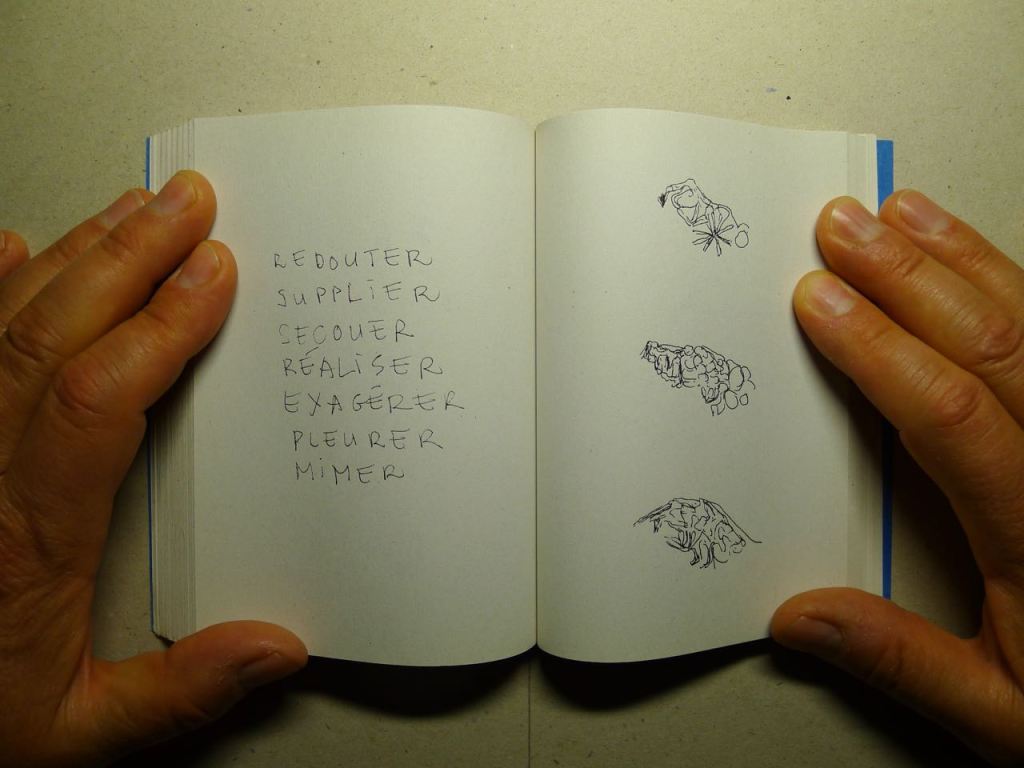 REDOUTER
SUPPLiER
SECOUER
RÉALiSER
EXAGÉRER
PLEURER
MiMER